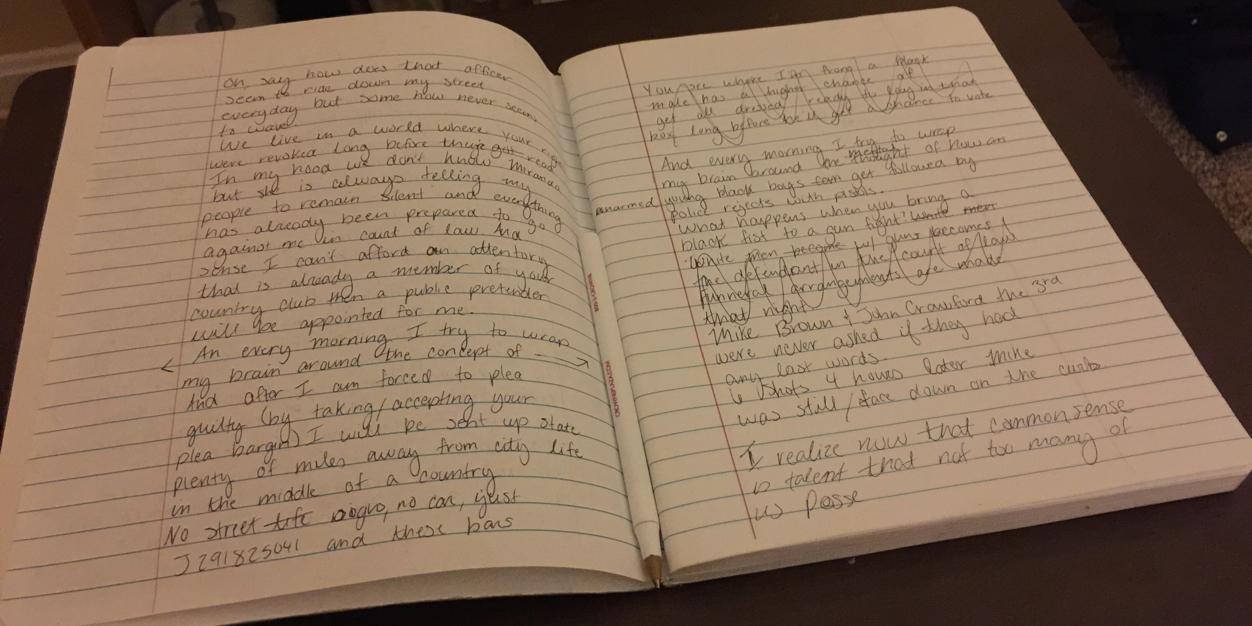 Oh, say how does that officer
seem to ride down my street
everyday but some how never seems
to wave
We live in a world where your
were revoked long before they got read
In my hood we don't know Miranda
but she is always telling my
people to remain silent and everything
has already been prepared to go
against me in court of law. And
sense I can't afford an
that is already a member of your
country club then a public pretender
will be appointed for me.
An every morning I try to wrap
my brain around the concept of
And after I am forced to plea
guilty (by taking/accepting your
plea bargin) I will be sent up state
plenty of miles away from city life
in the middle of a country
No street life no car, just
J291825041 and these bars
You see where I'm from a Black
male has a higher chance of
get all dressed ready to lay in that
box long before he'll get a chance to vote
And every morning I try to wrap
my brain around the thought of how an
unarmed young black boys can get followed by
police rejects with pistols.
What happens when you bring a
black fist to a gun fight? White men
White men become w/ guns becomes
the defendant in the court of law
funneral arrangements are made
that night
Mike Brown & John Crawford the 3rd
were never asked if they had
any last words.
6 shots 4 hours later Mike
was still/face down on the curb
I realize now that common sense
is talent that not too many of
us Posse